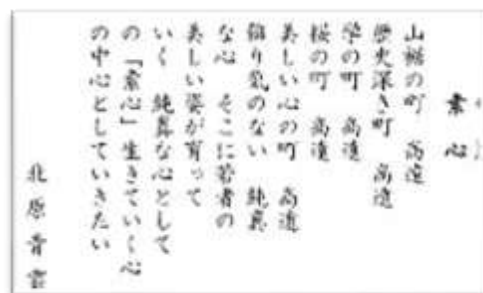 素心
山裾の町 高遠
歴史深き町 高遠
学の町 高遠
桜の町 高遠
美しい心の町 高遠
飾り気のない 純真
な心 そこに若者の
美しい姿が育って
いく 純真な心として
の「素心」生きていく心
の中心としていきたい
北原青雲